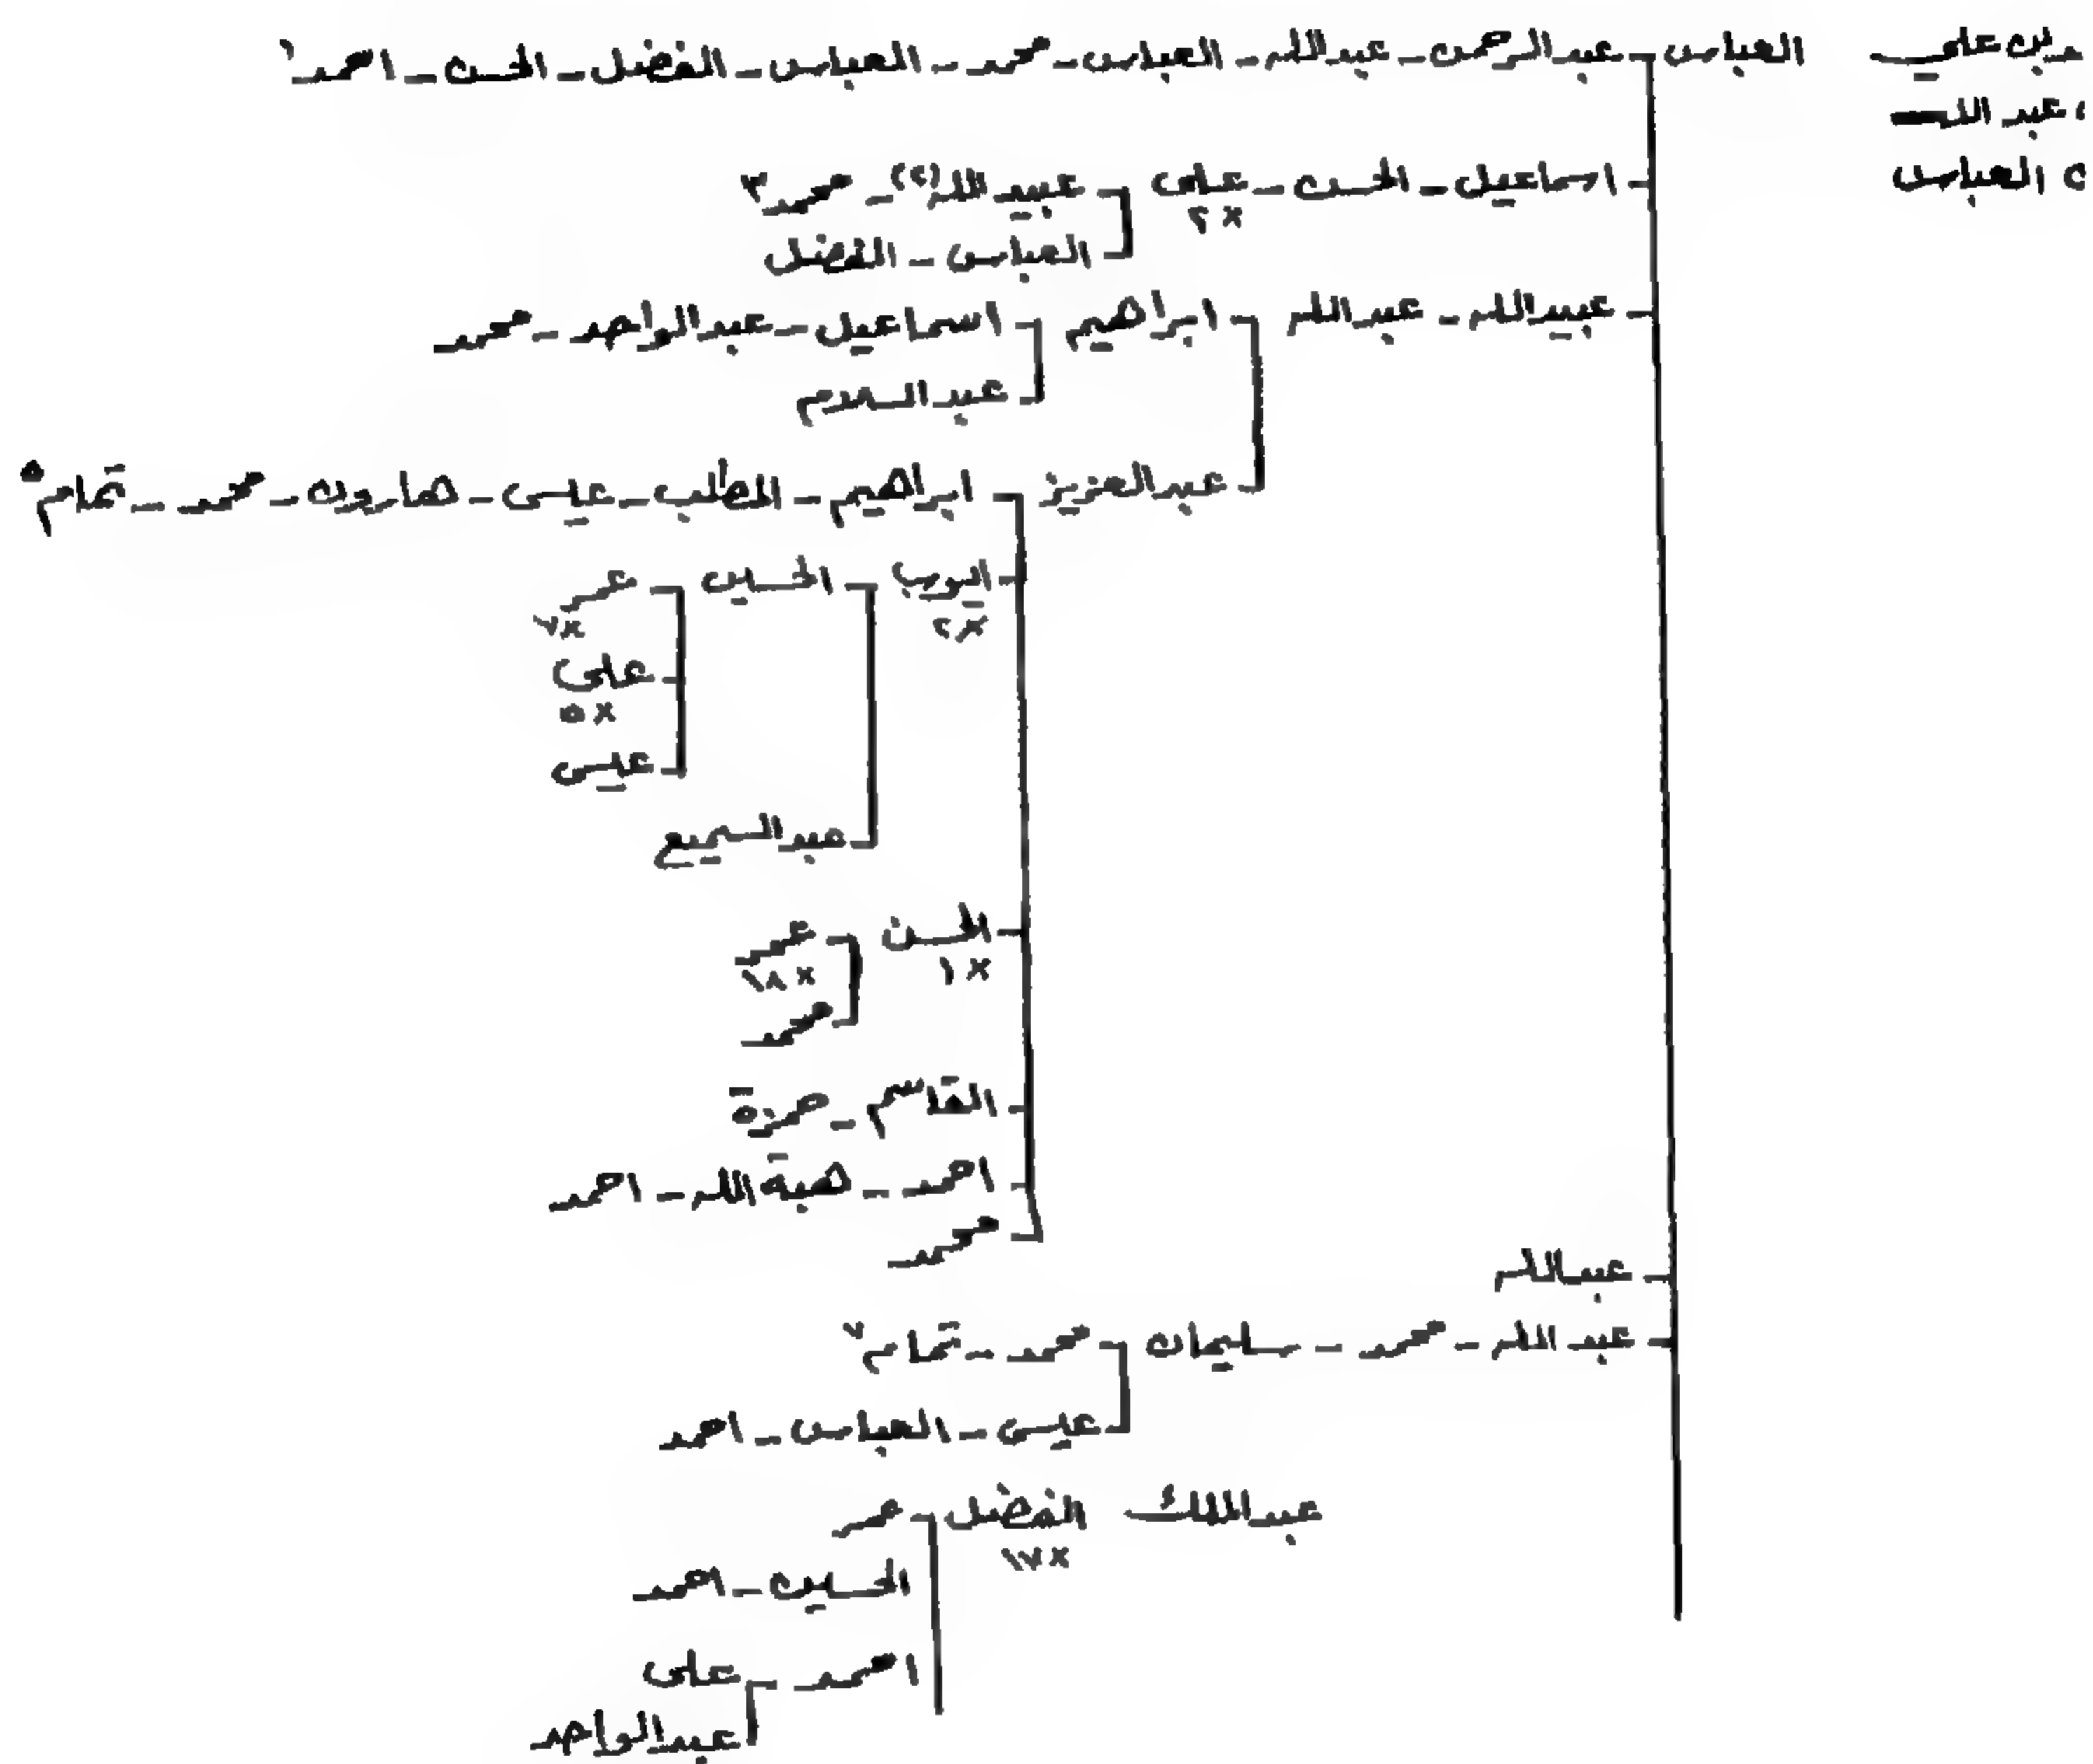 بن علي العباس - عبدالرحمن - عبدالله - العباس - محمد - العباس - الفضل - الحسن - احمد ١
عبد الله
العباس
اسماعيل - الحسن - علي - عبيد الله (٢) - محمد ٣
×٢
العباس - الفضل
عبيدالله - عبدالله - ابراهيم - اسماعيل - عبدالواحد - محمد
عبد السلام
عبدالعزيز - ابراهيم - المطلب - عيسى - هارون - محمد - تمام ٥
ايوب - الحسين - عمر
×٢ ×٧
علي
×٥
عيسى
عبد السميع
الحسن - عمر
×١ ×١٨
محمد
القاسم - حمزة
احمد - هبة الله - احمد
محمد
عبدالله
عبد الله - محمد - سليمان - محمد - تمام ٧
عيسى - العباس - احمد
عبدالملك الفضل - عمر
×١٧
الحسين - احمد
احمد - علي
عبدالواحد